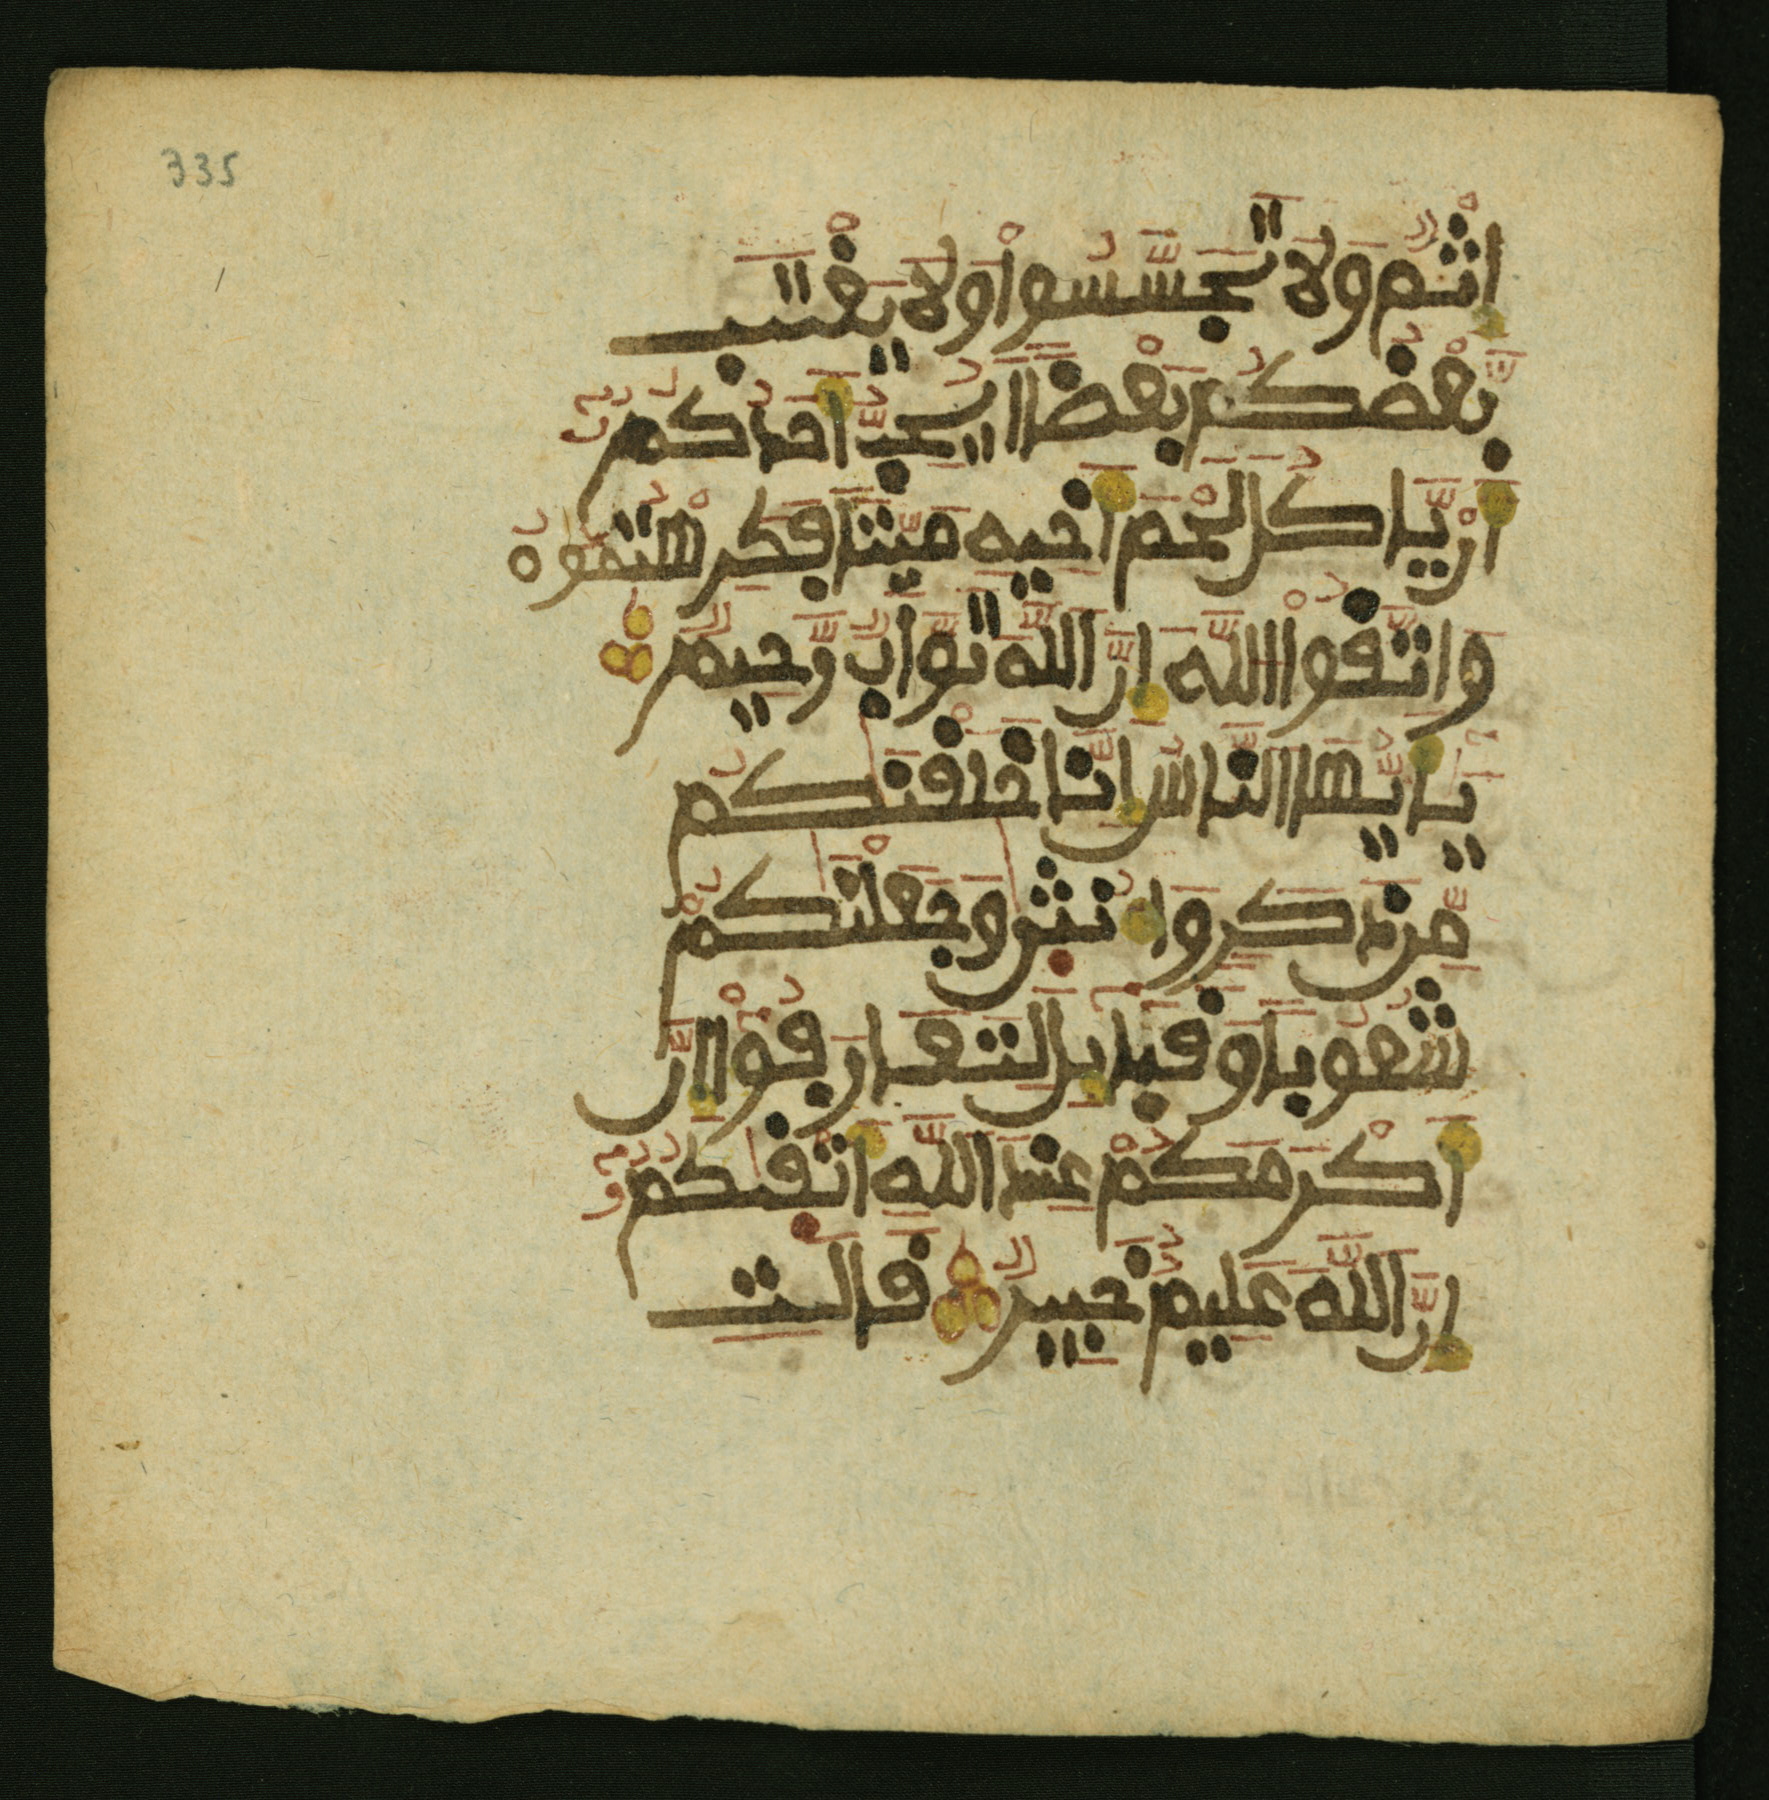 335
اِثْمٌ وَلَا تَجَسَّسُواْ وَلَا يَغْتَب
بَّعْضُكُم بَعْضًا اَيُحِبُّ أَحَدُكُمُ
أَنْ يَّاكُلَ لَحْمَ أَخِيهِ مَيِّتًا فَكَرِهْتُمُوهُ
وَاتَّقُواْ اللَّهَ إِنَّ اللَّهَ تَوَّابٌ رَّحِيمٌ
يَأَيُّهَا النَّاسُ إِنَّا خَلَقْنَكُم
مِّن ذَكَرٍ وَأُنثى وَجَعَلْنَكُمْ
شُعُوبًا وَقَبَايِلَ لِتَعَارَفُوْا إِنَّ
أَكْرَمَكُمْ عِندَ اللَّهِ أَتْقيكُمُ
إِنَّ اللَّهَ عَلِيمٌ خَبِيرٌ قَالَتِ